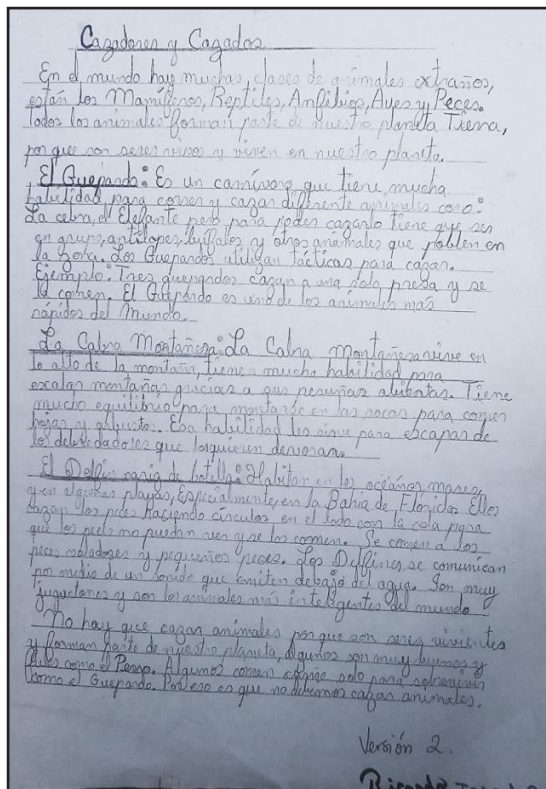 Cazadores y Cazados
En el mundo hay muchas clases de animales extraños,
están los Mamíferos, Reptiles, Anfibios, Aves y Peces.
Todos los animales forman parte de nuestro planeta Tierra,
por que son seres vivos y viven en nuestro planeta.
El Guepardo: Es un carnívoro que tiene mucha
habilidad para correr y cazar diferente animales como:
La cebra, el Elefante pero para poder cazarlo tiene que ser
en grupo, antílopes, búfalos y otros animales que poblen en
la zona. Los Guepardos utilizan tácticas para cazar.
Ejemplo: Tres guepardos cazan a una sola presa y se
la comen. El Guepardo es uno de los animales más
rápidos del Mundo.
La Cabra Montañesa: La Cabra Montañesa vive en
lo alto de la montaña, tiene mucha habilidad para
escalar montañas gracias a sus pesuñas abiertas. Tiene
mucho equilibrio para montarse en las rocas para comer
hojas y arbustos. Esa habilidad les sirve para escapar de
los que los quieren devorar.
El Delfín nariz de botella: Habitan en los océanos, mares,
y en algunas playas, Especialmente, en la Bahia de Florida. Ellos
cazan los peces haciendo círculos en el lodo con la cola para
que los peces no puedan ver y se los comen. Se comen a los
peces voladores y pequeños peces. Los Delfines se comunican
por medio de un sonido que emiten debajo del agua. Son muy
juguetones y son los animales más inteligentes del mundo
No hay que cazar animales por que son seres vivientes
y forman parte de nuestro planeta, algunos son muy buenos y
como el Perro. Algunos comen carne solo para sobrevivir
como el Guepardo. Por eso es que no debemos cazar animales.
Versión 2.
Ricardo